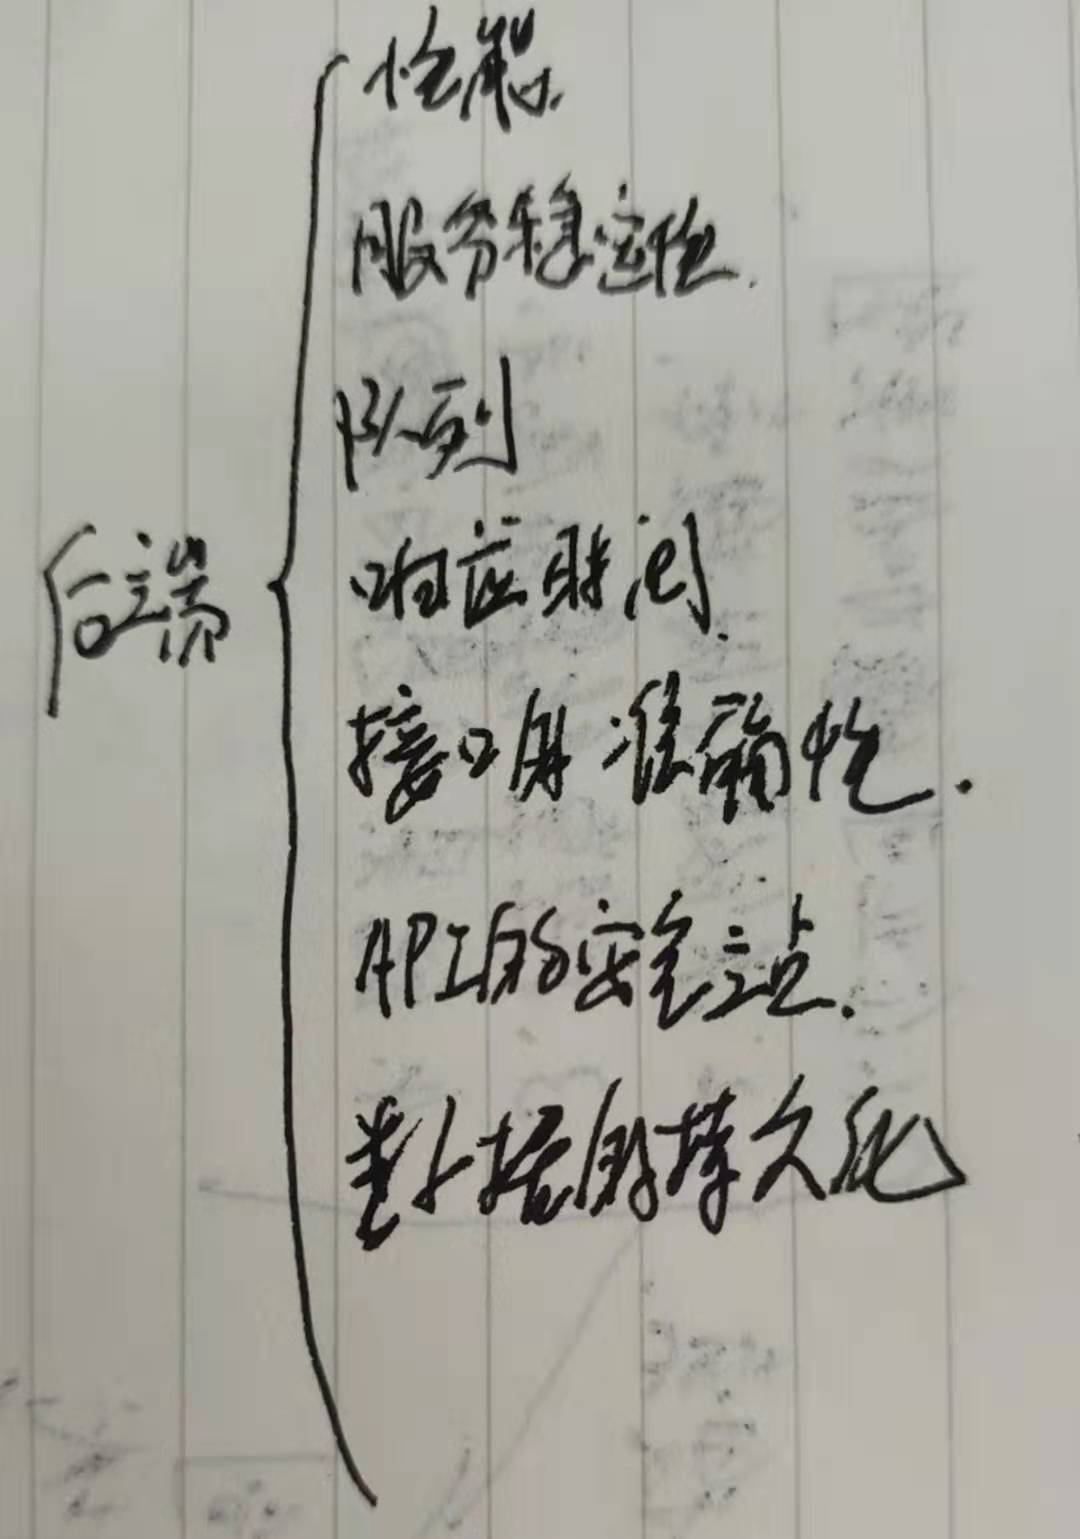 性能.
服务稳定性.
队列
后端
响应时间.
接口的准确性.
API的安全
数据的持久化